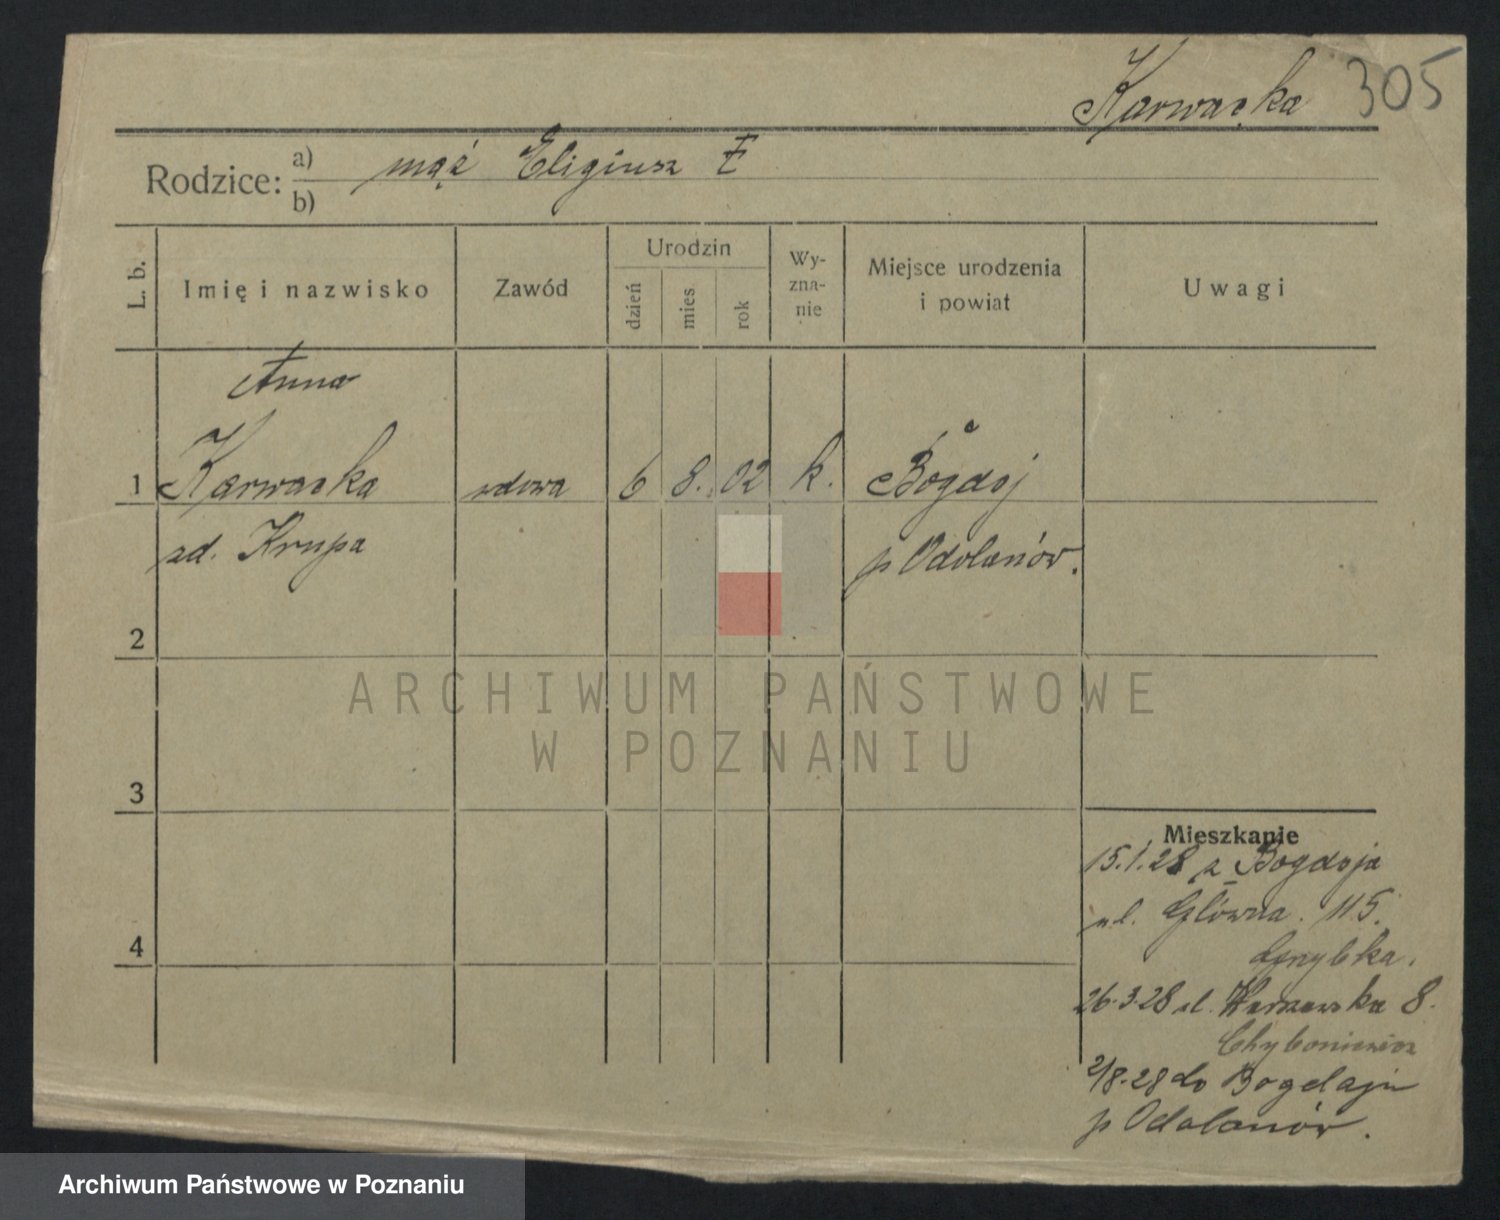 Karwacka 305
Rodzice: a) mąż Eligiusz
b)
L. b.
Imię i nazwisko
Zawód
Urodzin
dzień
mies
rok
Wy-
zna-
nie
Miejsce urodzenia
i powiat
Uwagi
Anna
1 Karwacka wdowa 6 8. 02 k. Bogdaj
zd. Krupa p Odolanów.
2
ARCHIWUM PAŃSTWOWE
W POZNANIU
3
Mieszkanie
15.1.28 z Bogdaja
ul. Główna. 115.
Grzybka.
4
26.3.28 ul. Warszawska 8.
2/8.28 do Bogdaju
p Odolanów.
Archiwum Państwowe w Poznaniu